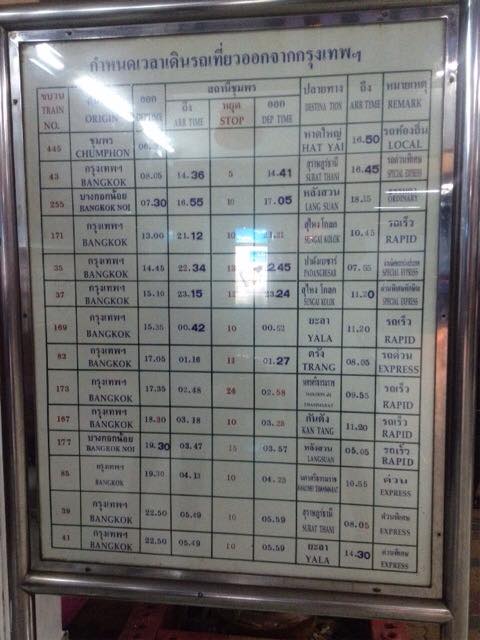 กำหนดเวลาเดินรถเที่ยวออกจากกรุงเทพฯ
ขบวน ออก สถานีชุมพร ปลายทาง ถึง หมายเหตุ
TRAIN NO. ORIGIN ถึง ARR TIME หยุด STOP ออก DEP TIME DESTINATION ARR TIME REMARK
445 ชุมพร หาดใหญ่ 16.50 รถท้องถิ่น
CHUMPHON HAT YAI LOCAL
43 กรุงเทพฯ 08.05 14.36 5 14.41 สุราษฎร์ธานี 16.45 รถด่วนพิเศษ
BANGKOK SURAT THANI SPECIAL EXPRESS
255 บางกอกน้อย 07.30 16.55 10 17.05 หลังสวน 18.15
BANGKOK NOI LANG SUAN ORDINARY
171 กรุงเทพฯ 13.00 21.12 10 สุไหงโกลก 10.45 รถเร็ว
BANGKOK SUNGAI KOLOK RAPID
35 กรุงเทพฯ 14.45 22.34 ปาดังเบซาร์ 07.55
BANGKOK PADANGBESAR SPECIAL EXPRESS
37 กรุงเทพฯ 15.10 23.15 23.24 สุไหงโกลก 11.20
BANGKOK SUNGAI KOLOK SPECIAL EXPRESS
169 กรุงเทพฯ 15.35 00.42 10 00.52 ยะลา 11.20 รถเร็ว
BANGKOK YALA RAPID
83 กรุงเทพฯ 17.05 01.16 11 01.27 ตรัง 08.05 รถด่วน
BANGKOK TRANG EXPRESS
173 กรุงเทพฯ 17.35 02.48 02.58 นครศรีธรรมราช 09.55 รถเร็ว
BANGKOK RAPID
167 กรุงเทพฯ 18.30 03.18 10 03.28 กันตัง 11.20 รถเร็ว
BANGKOK KAN TANG RAPID
177 บางกอกน้อย 19.30 03.47 03.57 หลังสวน 05.05 รถเร็ว
BANGKOK NOI LANGSUAN RAPID
85 กรุงเทพฯ 19.30 04.13 10 04.23 นครศรีธรรมราช 10.55 ด่วน
BANGKOK EXPRESS
39 กรุงเทพฯ 22.50 05.49 10 05.59 สุราษฎร์ธานี 08.05 ด่วนพิเศษ
BANGKOK SURAT THANI EXPRESS
41 กรุงเทพฯ 22.50 05.49 10 05.59 ยะลา 14.30 ด่วนพิเศษ
BANGKOK YALA EXPRESS